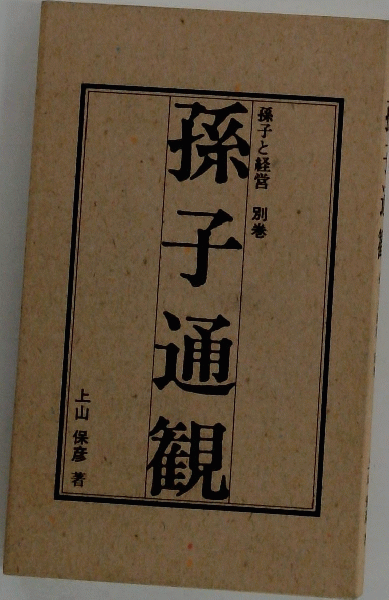 孫子と経営 別巻
孫子通観
上山 保彦 著